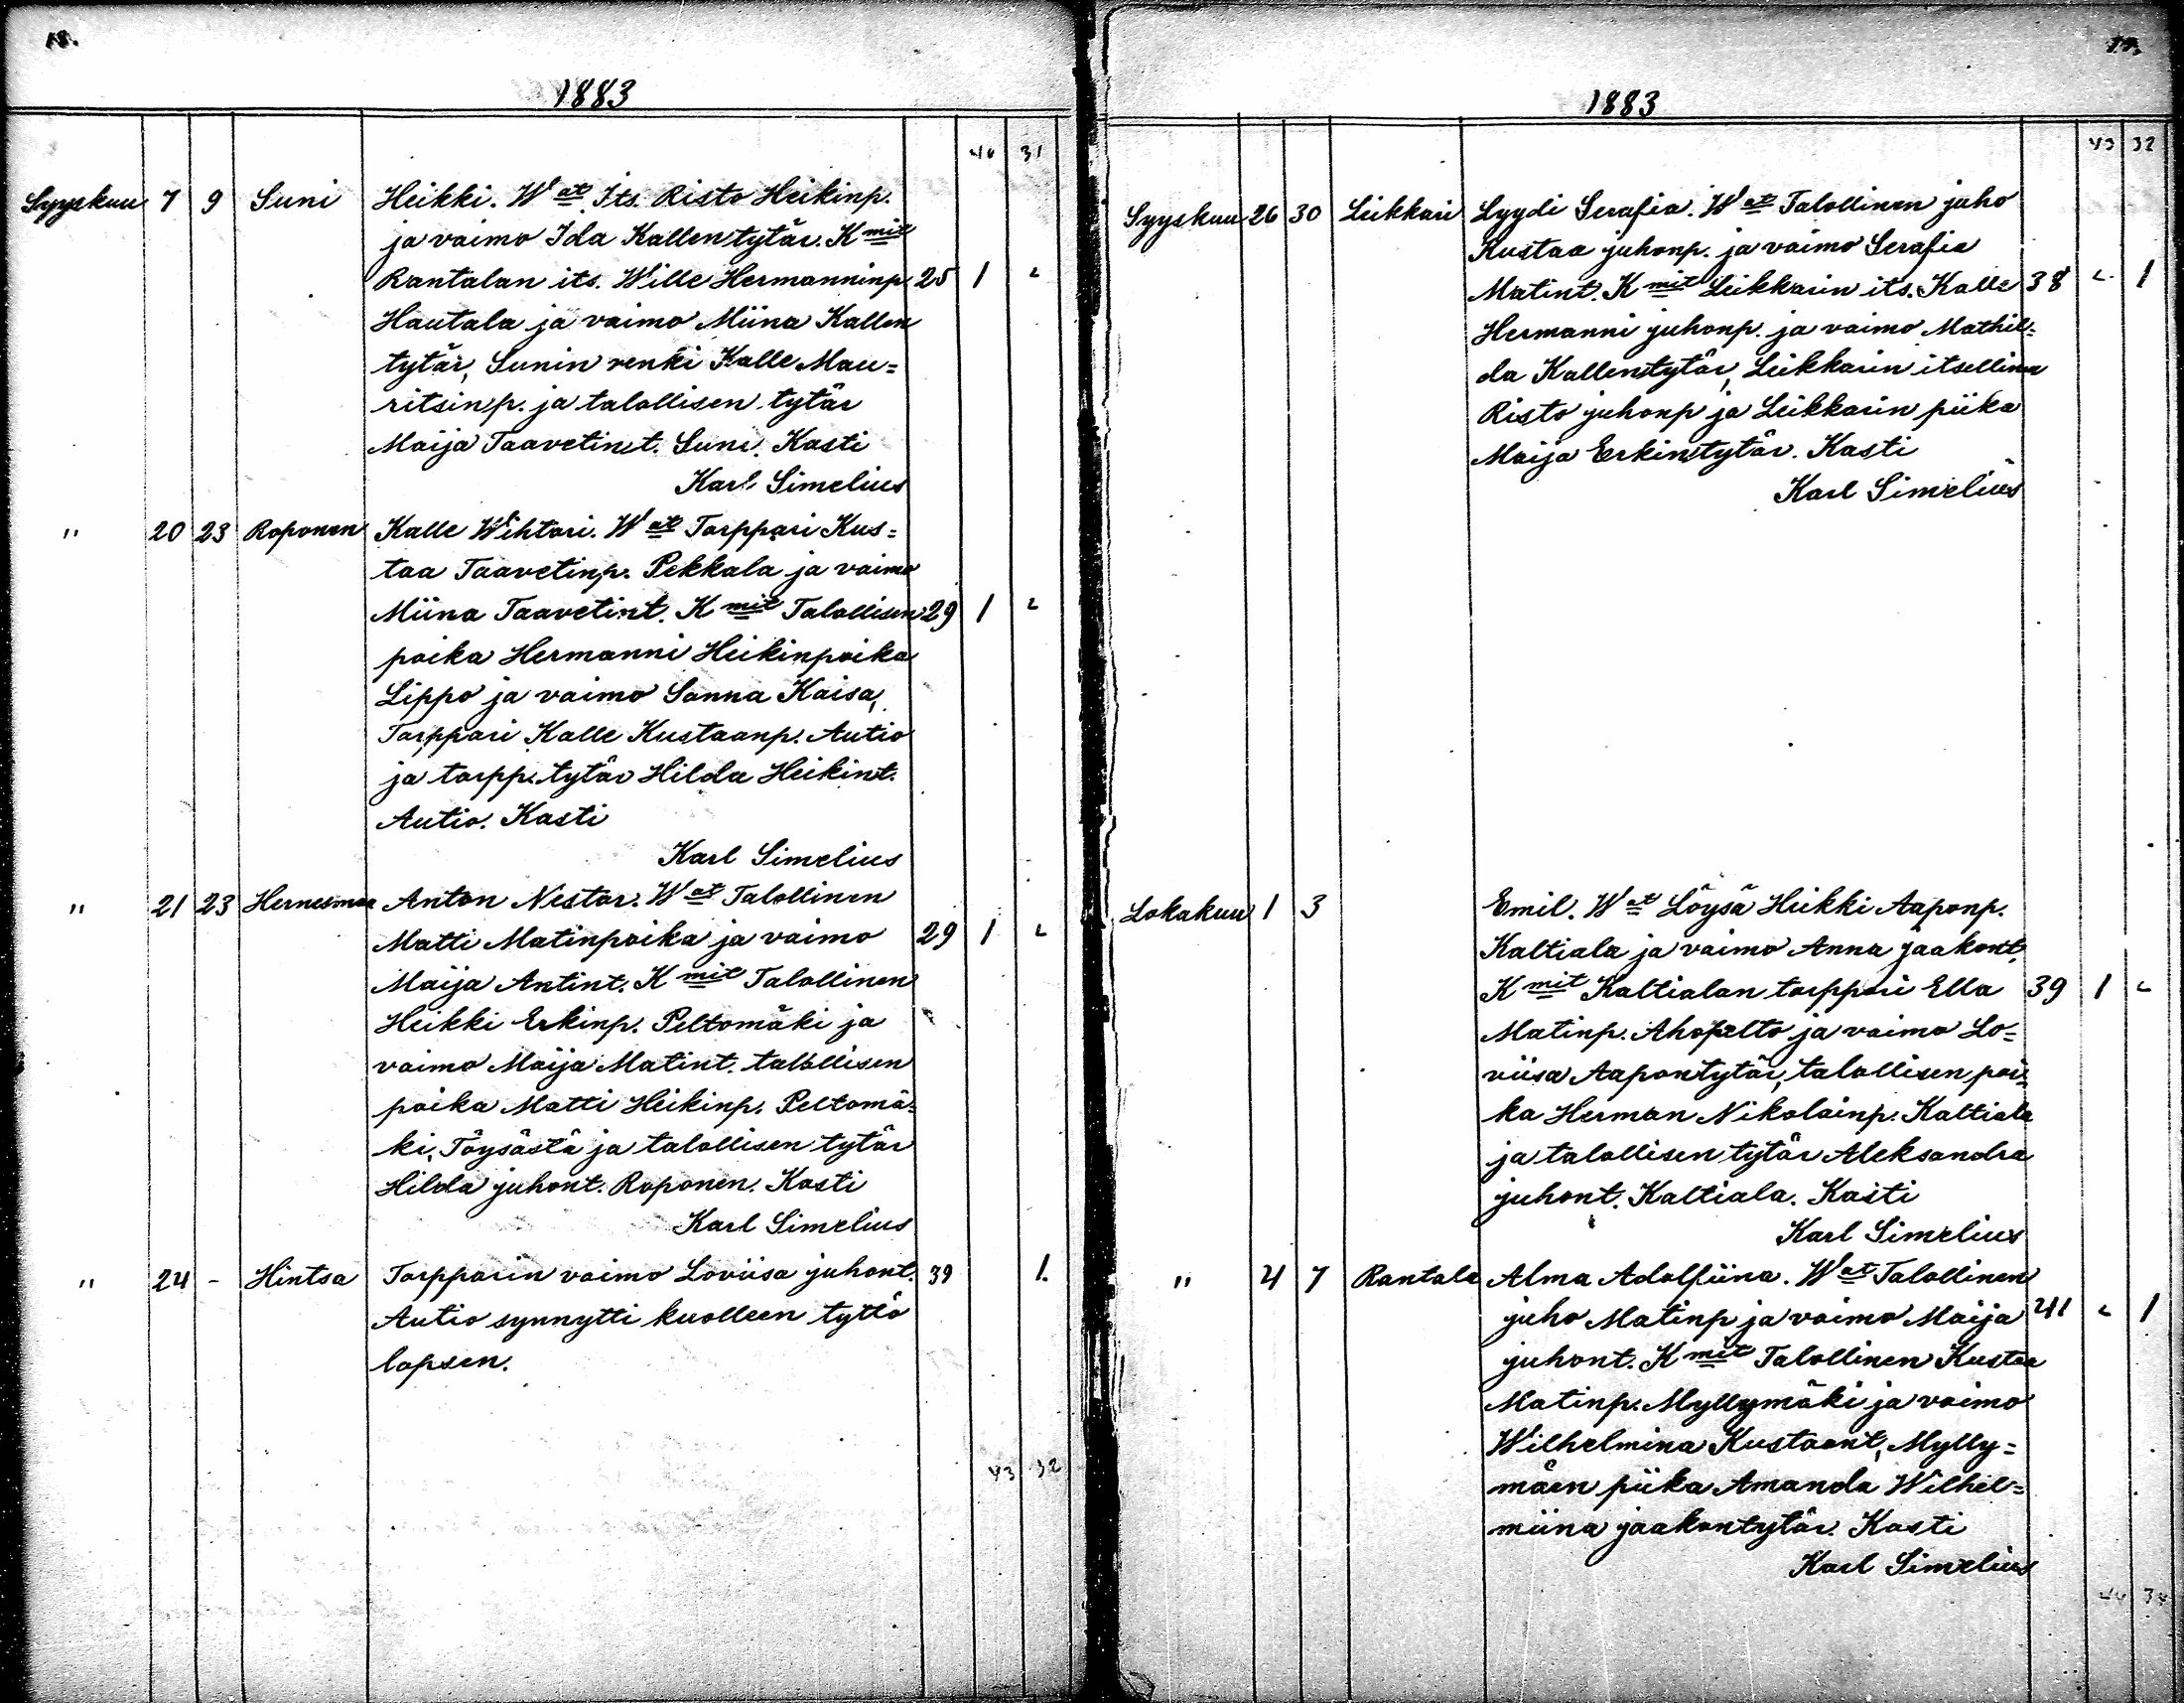 18.
1883
40 31
Syyskuu 7 9 Suni Heikki. W at Its. Risto Heikinp.
ja vaimo Ida Kallentytär. K mit
Rantalan its. Wille Hermanninp. 25 1 "
Hautala ja vaimo Miina Kallen
tytär, Sunin renki Kalle Mau=
ritsinp. ja talollisen tytär
Maija Taavetint. Suni. Kasti
Karl Simelius
" 20 23 Roponen Kalle Wihtori. W at Torppari Kus=
taa Taavetinp. Pekkala ja vaimo
Miina Taavetint. K mit Talollisen 29 1 "
poika Hermanni Heikinpoika
Lippo ja vaimo Sanna Kaisa,
Torppari Kalle Kustaanp. Autio
ja torpp. tytär Hilda Heikint.
Autio. Kasti
Karl Simelius
" 21 23 Hernesmaa Anton Nestor. W at Talollinen
Matti Matinpoika ja vaimo 29 1 "
Maija Antint. K mit Talollinen
Heikki Erkinp. Peltomäki ja
vaimo Maija Matint. talollisen
poika Matti Heikinp. Peltomä=
ki, Töysästä ja talollisen tytär
Hilda Juhont. Roponen. Kasti
Karl Simelius
" 24 - Hintsa Torpparin vaimo Loviisa Juhont. 39 1.
Autio synnytti kuolleen tyttö
lapsen.
43 32
1883
43 32
Syyskuu 26 30 Liikkari Lyydi Serafia. W at Talollinen Juho
Kustaa Juhonp. ja vaimo Serafia
Matint. K mit Liikkarin its. Kalle 38 " 1
Hermanni Juhonp. ja vaimo Mathil=
da Kallentytär, Liikkarin itsellinen
Risto Juhonp ja Liikkarin piika
Maija Erkintytär. Kasti
Karl Simelius
Lokakuu 1 3 Emil. W at Löysä Heikki Aaponp.
Kaltiala ja vaimo Anna Jaakont.
K mit Kaltialan torppari Ella 39 1 "
Matinp. Ahopelto ja vaimo Lo=
viisa Aapontytär, talollisen poi=
ka Herman Nikolainp. Kaltiala
ja talollisen tytär Aleksandra
Juhont. Kaltiala. Kasti
Karl Simelius
" 4 7 Rantala Alma Adolfiina. W at Talollinen
Juho Matinp ja vaimo Maija 41 " 1
Juhont. K mit Talollinen Kustaa
Matinp. Myllymäki ja vaimo
Wilhelmina Kustaant, Mylly=
mäen piika Amanda Wilhel=
miina Jaakontytär. Kasti
Karl Simelius